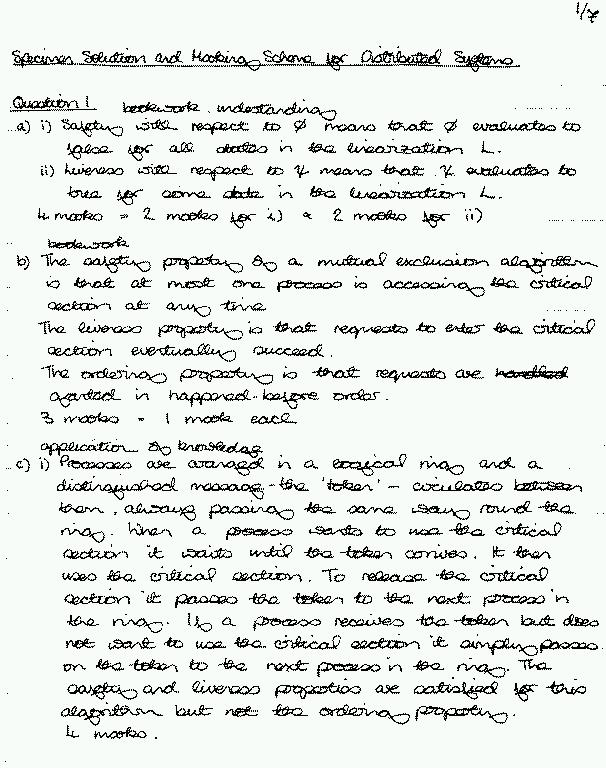 1/7
Specimen Solution and Marking Scheme for Distributed Systems
Question 1 bookwork understanding
a) i) Safety with respect to ∅ means that ∅ evaluates to
false for all states in the linearization L.
ii) Liveness with respect to Ψ means that Ψ evaluates to
true for some state in the linearization L.
4 marks = 2 marks for i) + 2 marks for ii)
bookwork
b) The safety property of a mutual exclusion algorithm
is that at most one process is accessing the critical
section at any time
The liveness property is that requests to enter the critical
section eventually succeed.
The ordering property is that requests are handled
granted in happened-before order.
3 marks = 1 mark each
application of knowledge
c) i) Processes are arranged in a logical ring and a
distinguished message - the 'token' - circulates between
them, always passing the same way round the
ring. When a process wants to use the critical
section it waits until the token arrives. It then
uses the critical section. To release the critical
section it passes the token to the next process in
the ring. If a process receives the token but does
not want to use the critical section it simply passes
on the token to the next process in the ring. The
safety and liveness properties are satisfied for this
algorithm but not the ordering property.
4 marks.